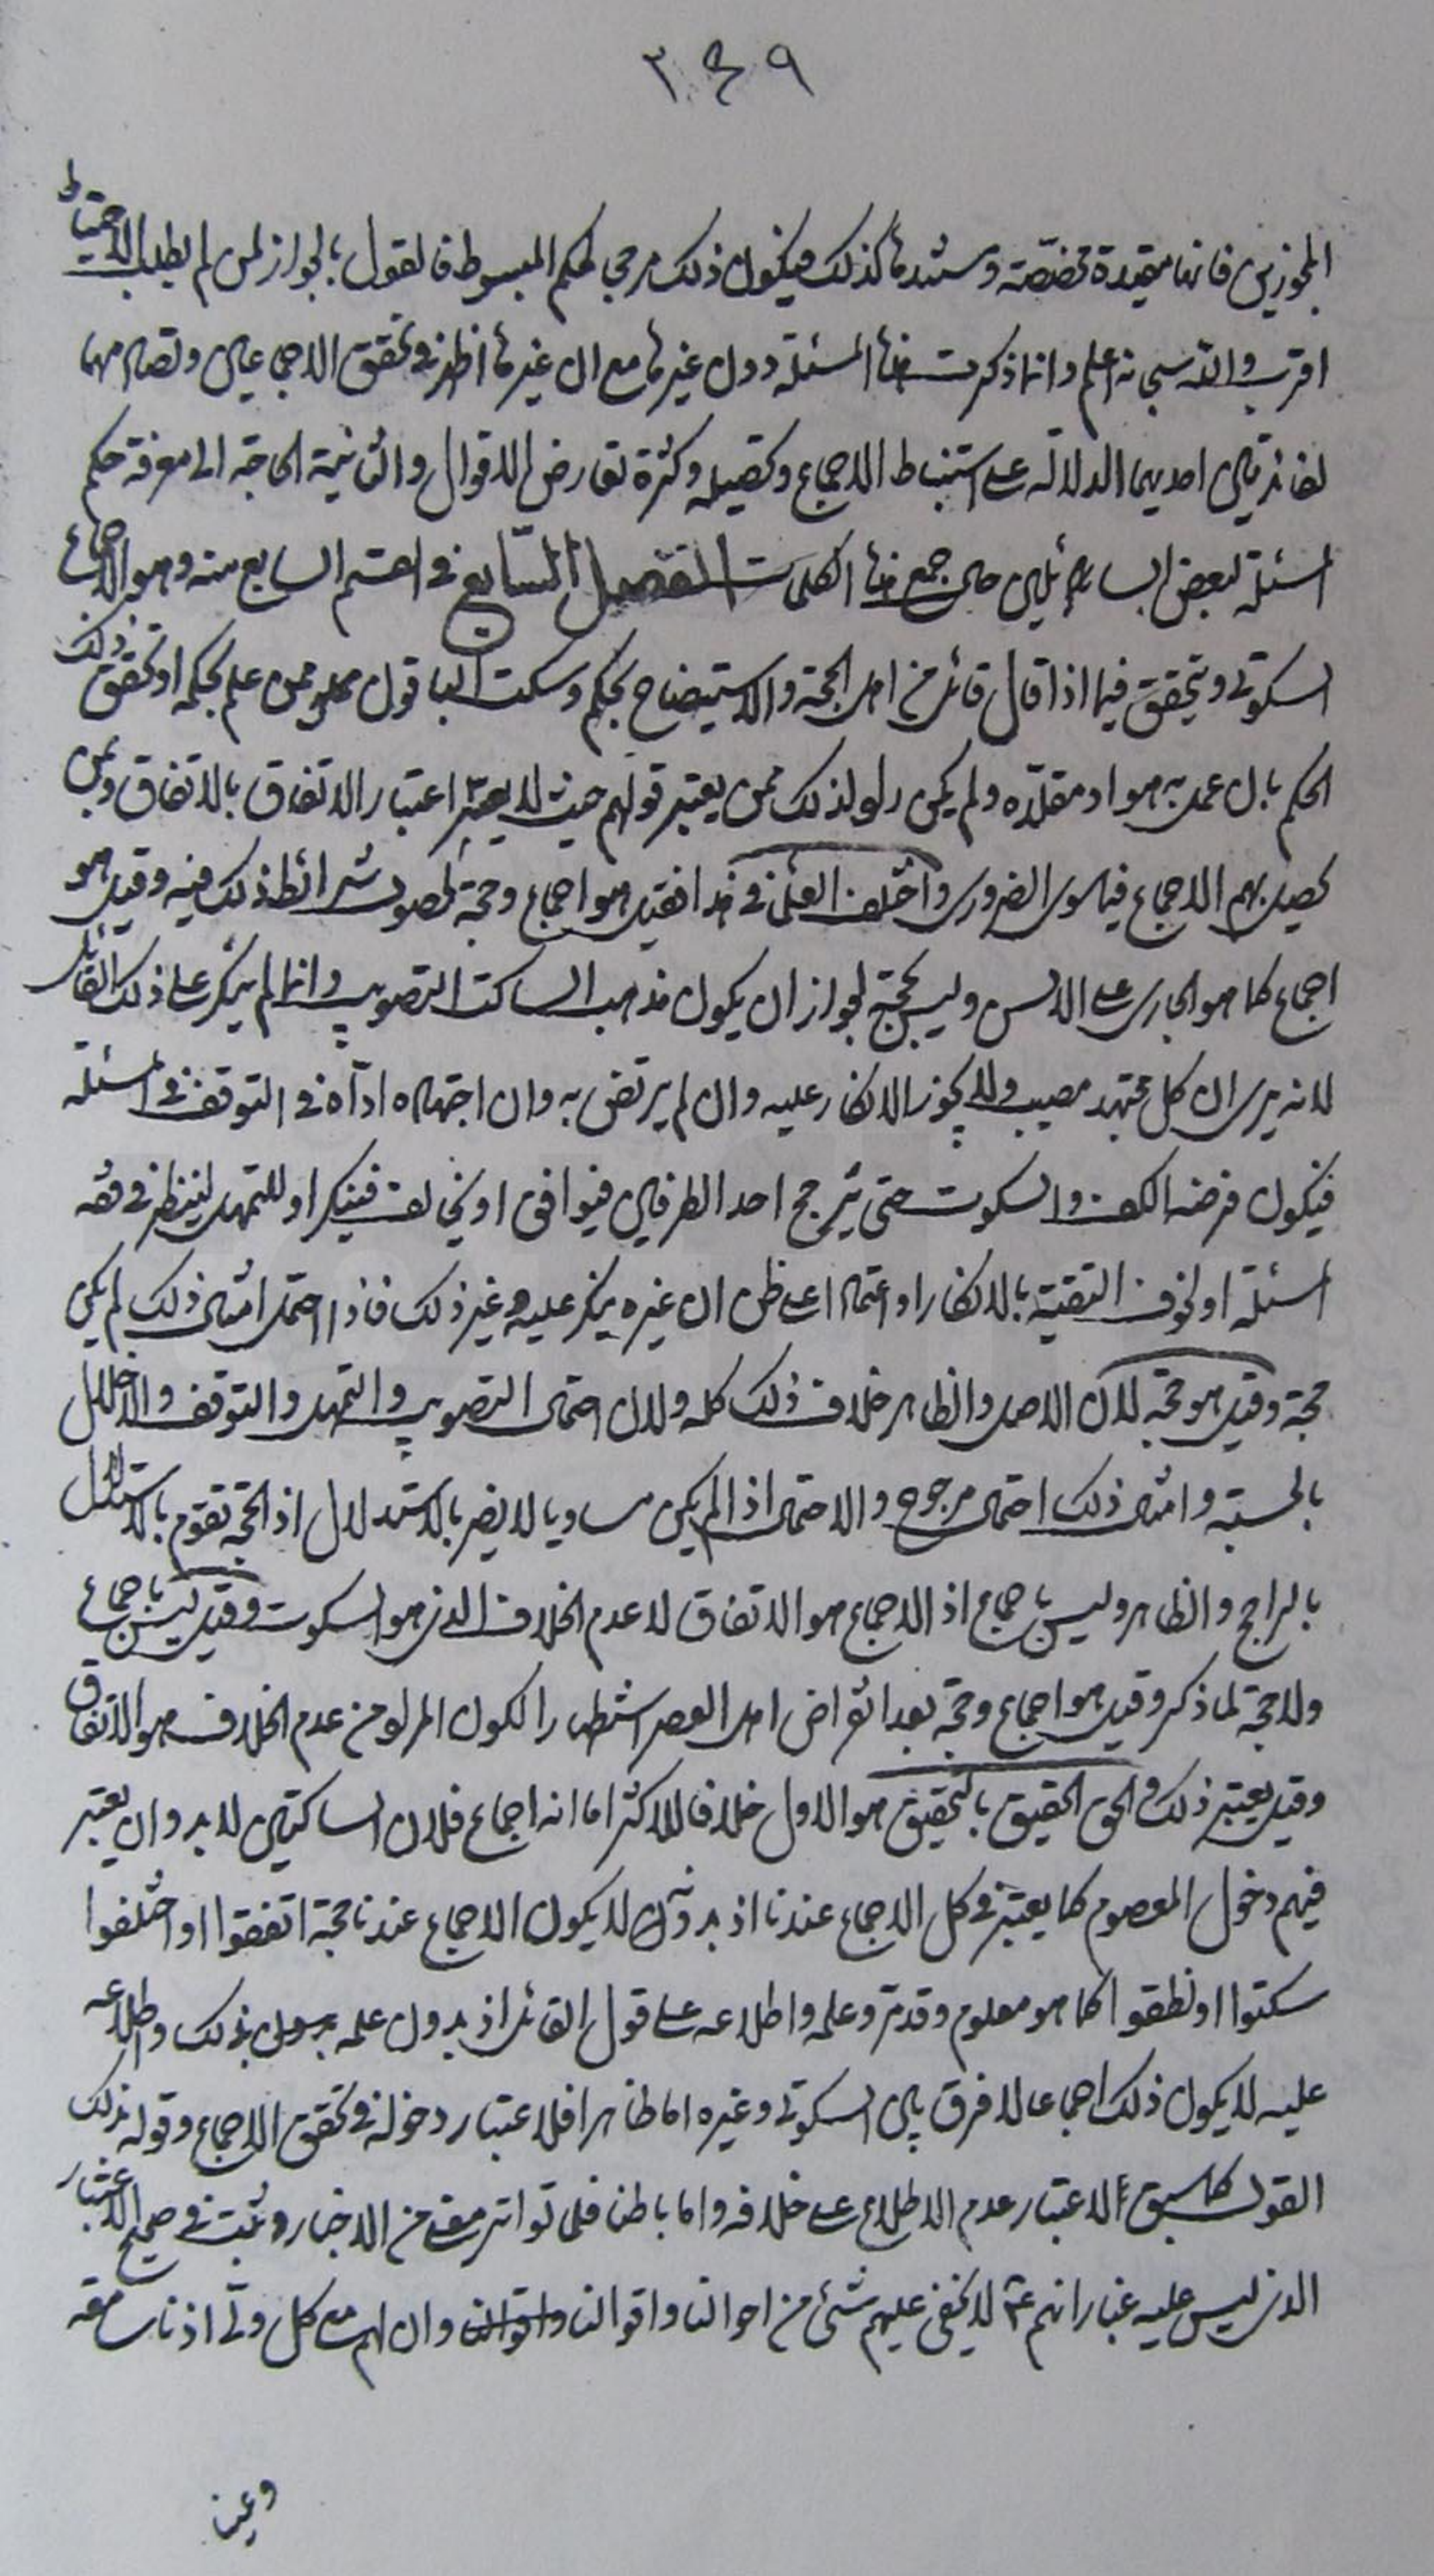 ٣٤٩
المجوزين فانها مقيدة مخصصة ومسندها كذلك فيكون ذلك مرجي لحكم المبسوط فالقول بالجواز لمن لم يطلب الاحتياط
اقرب والله سبحانه اعلم وانما ذكرت هذه المسئلة دون غيرها مع ان غيرها اظهر في تحقق الاجماعين وتصادمهما
لفائدتين احديهما الدلالة على استنباط الاجماع وتحصيله وكثرة تعارض الاقوال والثانية الحاجة الى معرفة حكم
المسئلة لبعض السائلين حال جمع هذه الكلمات الفصل السابع في القسم السابع منه وهو الاجماع
السكوتي ويتحقق فيما اذا قال قائل من اهل الحجة والاستيضاح بحكم وسكت الباقون ممن علم بحكمه او تحقق ذلك
الحكم بان عمل به هو او مقلده ولم يكن راو لذلك ممن يعتبر قولهم حيث لا يعتبر اعتبار الاتفاق بالاتفاق وبمن
يحصل بهم الاجماع فيما سوى الضروري واختلف العلماء في هذا فقيل هو اجماع وحجة لحصول شرائط ذلك فيه وقيل هو
اجماع كما هو الجاري على الالسن وليس بحجة لجواز ان يكون مذهب الساكت التصويب وانما لم ينكر على ذلك القائل
لانه يرى ان كل مجتهد مصيب ولا يجوز الانكار عليه وان لم يرتض به وان اجتهاده اداه في التوقف في المسئلة
فيكون فرضه الكف والسكوت حتى يترجح احد الطرفين فيوافق او يخالف فينكر او للتمهل لينظر في فقه
المسئلة او لخوف التقية بالانكار او اعتمادا على ظن ان غيره ينكر عليه وغير ذلك فاذا احتمل امثال ذلك لم يكن
حجة وقيل هو حجة لان الاصل والظاهر خلاف ذلك كله ولان احتمال التصويب والتمهل والتوقف والاخلال
بالحسبة وامثال ذلك احتمال مرجوح والاحتمال اذا لم يكن مساويا لا يضر بالاستدلال اذ الحجة تقوم بالاستدلال
بالراجح والظاهر وليس باجماع اذ الاجماع هو الاتفاق لا عدم الخلاف الذي هو السكوت وقيل ليس باجماع
ولا حجة لما ذكر وقيل هو اجماع وحجة بعد انقراض اهل العصر استظهارا لكون المراد من عدم الخلاف هو الاتفاق
وقيل يعتبر ذلك والحق الحقيق بالتحقيق هو الاول خلافا للاكثر اما انه اجماع فلان الساكتين لا بد وان يعتبر
فيهم دخول المعصوم كما يعتبر في كل الاجماع عندنا اذ بدونه لا يكون الاجماع عندنا حجة اتفقوا او اختلفوا
سكتوا او نطقوا كما هو معلوم وقد مر وعلمه واطلاعه على قول القائل اذ بدون علمه بذلك واطلاعه
عليه لا يكون ذلك اجماعا لا فرق بين السكوتي وغيره اما ظاهرا فلاعتبار دخوله في تحقق الاجماع وقوله بذلك
القول كما سبق لاعتبار عدم الاطلاع على خلافه واما باطنا فلما تواتر معنى من الاخبار وثبت في صحيح الاعتبار
الذي ليس عليه غبار انهم ع لا يخفى عليهم شئ من احوالنا واقوالنا وان لهم مع كل ولي اذنا سامعة
وعينا